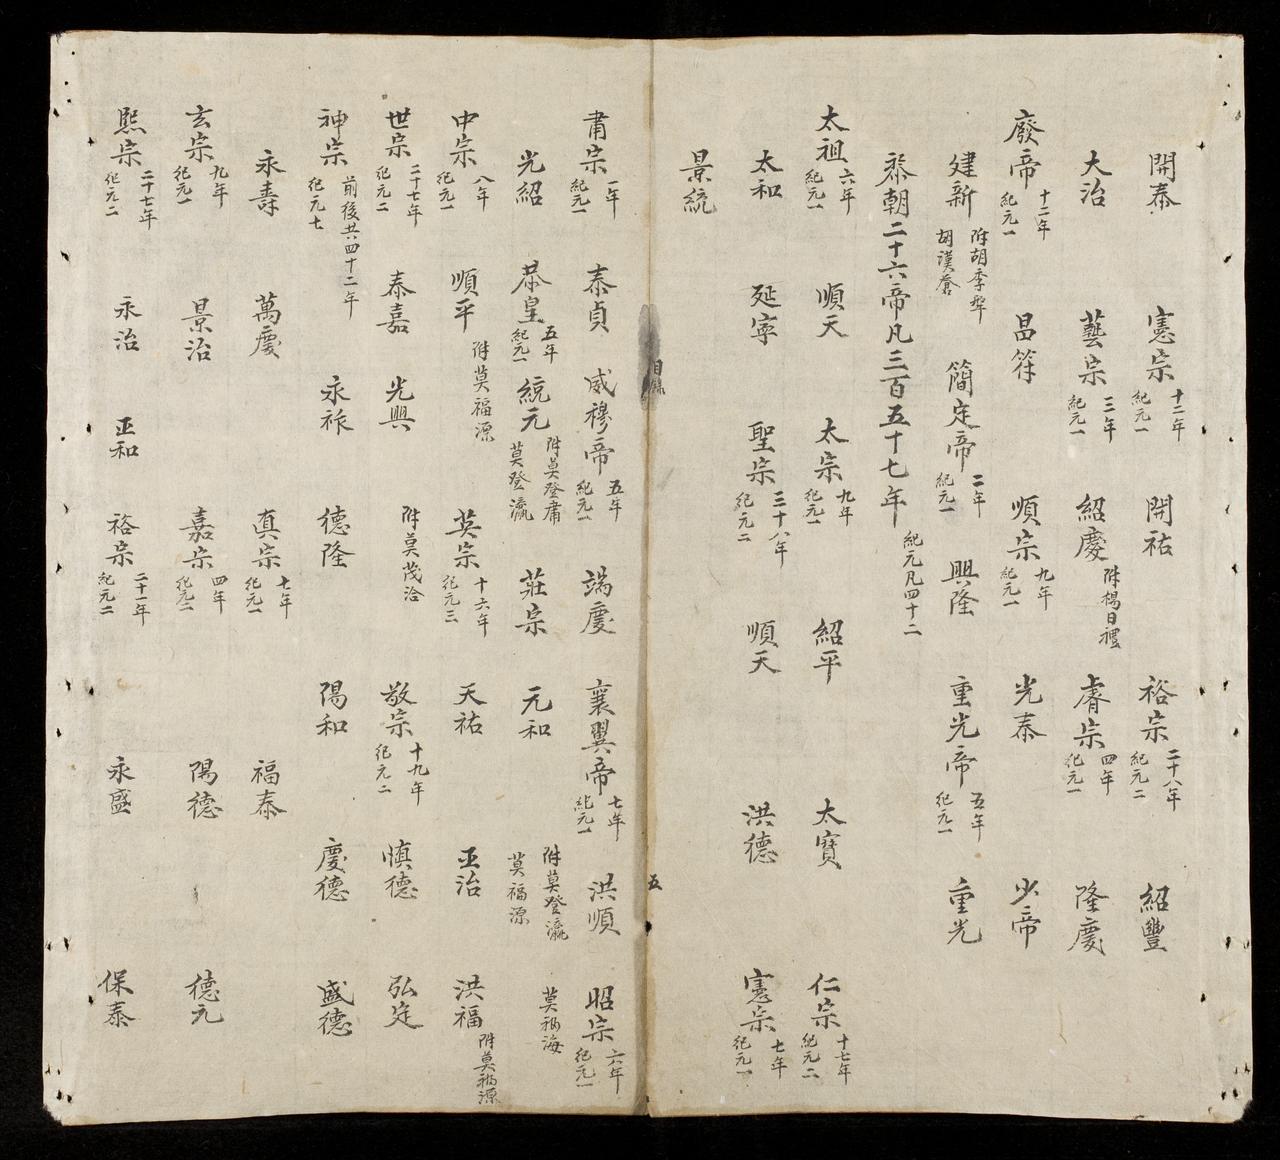 開泰 憲宗 十二年 紀元一 開祐 裕宗 二十八年 紀元二 紹豐
大治 藝宗 三年 紀元一 紹慶 附楊日禮 睿宗 四年 紀元一 隆慶
廢帝 十二年 紀元一 昌符 順宗 九年 紀元一 光泰 少帝
建新 附胡季犛 胡漢蒼 簡定帝 二年 紀元一 興隆 重光帝 五年 紀元一 重光
黎朝二十六帝凡三百五十七年 紀元凡四十二
太祖 六年 紀元一 順天 太宗 九年 紀元二 紹平 太寶 仁宗 十七年 紀元二
太和 延寧 聖宗 三十八年 紀元二 順天 洪德 憲宗 七年 紀元一
景統
目錄
五
肅宗 一年 紀元一 泰貞 威穆帝 五年 紀元一 端慶 襄翼帝 七年 紀元一 洪順 昭宗 六年 紀元一
光紹 恭皇 五年 紀元一 統元 附莫登庸 莫登瀛 莊宗 元和 附莫登瀛 莫福源 莫福海
中宗 八年 紀元一 順平 附莫福源 英宗 十六年 紀元三 天祐 正治 洪福 附莫福源
世宗 二十七年 紀元二 泰嘉 光興 附莫茂洽 敬宗 十九年 紀元二 慎德 弘定
神宗 前後共四十二年 紀元七 永祚 德隆 陽和 慶德 盛德
永壽 萬慶 真宗 七年 紀元一 福泰
玄宗 九年 紀元一 景治 嘉宗 四年 紀元二 陽德 德元
熙宗 二十七年 紀元二 永治 正和 裕宗 二十一年 紀元二 永盛 保泰